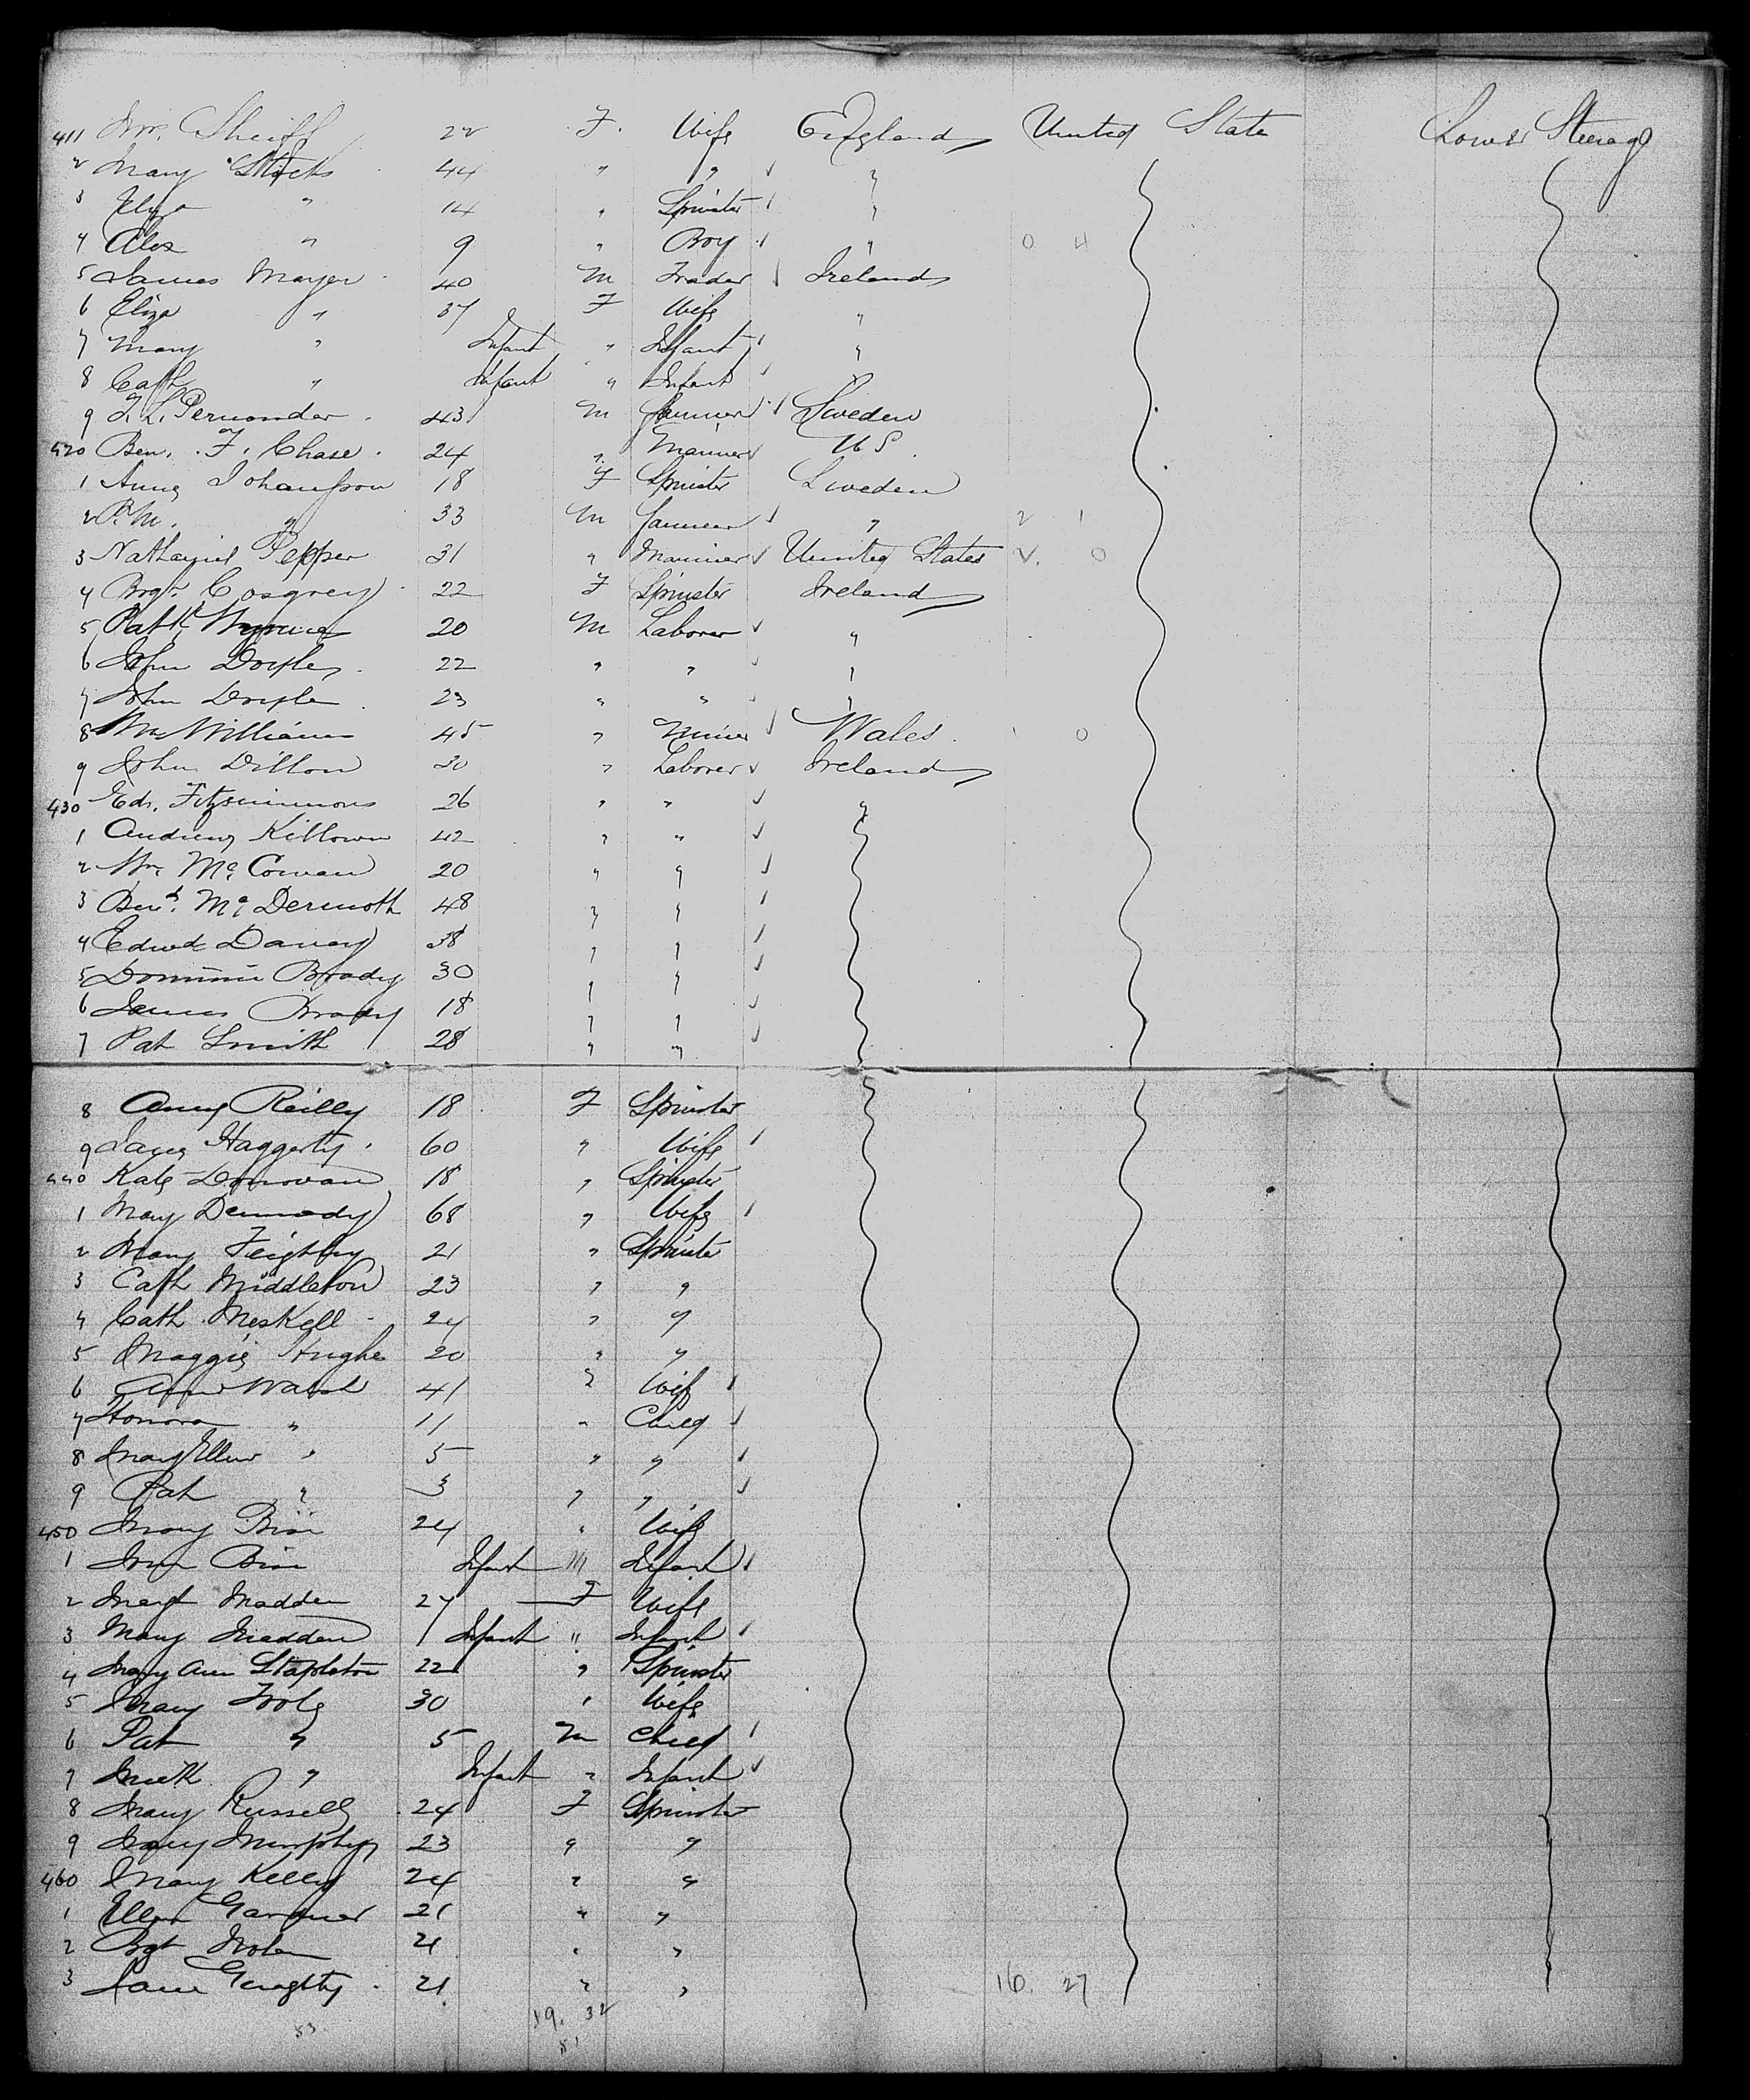 411 Mrs. Sheriff 22 F. Wife England United State Lower Steerage
2 Mary Stocks 44 " " "
3 Eliza " 14 " Spinster "
4 Alex " 9 " Boy " 0 4
5 James Mayer 40 M Trader Ireland
6 Eliza " 37 F Wife "
7 Mary " Infant " Infant "
8 Cath " Infant " Infant "
9 43 M Farmer Sweden
420 Ben. F. Chase 24 " Mariner U S.
1 Anna Johansson 18 F Spinster Sweden
2 P. M. " 33 M Farmer " 2 1
3 Nathaniel Pepper 31 " Mariner United States 2. 0
4 Brgt. Cosgrey 22 F Spinster Ireland
5 Patk 20 M Laborer "
6 John Doyle 22 " " "
7 John Doyle 23 " " "
8 Wm Williams 45 " Miner Wales 1 0
9 John Dillon 30 " Laborer Ireland
430 Ed. Fitzsimmons 26 " " "
1 Andrew Killown 42 " "
2 Wm McCowan 20 " "
3 Bend. McDermoth 48 " "
4 Edwd Davey 38 " "
5 Dominic Brady 30 " "
6 James Brady 18 " "
7 Pat Smith 28 " "
8 Anny Reilly 18 F Spinster
9 Haggerty 60 " Wife
440 Kate Donovan 18 " Spinster
1 Mary Dermody 68 " Wife
2 Mary Feightry 21 " Spinster
3 Cath Middleton 23 " "
4 Cath Meskell 24 " "
5 Maggie Hughes 20 " "
6 Ann Walsh 41 " Wife
7 Honora " 11 " Child
8 Mary Ellen " 5 " "
9 Pat " 3 " "
450 Mary 24 " Wife
1 Infant M Infant
2 Margt Madden 27 F Wife
3 Mary Madden 1 Infant " Infant
4 Mary Ann Stapleton 22 " Spinster
5 Mary Toole 30 " Wife
6 Pat " 5 M Child
7 Mick " Infant " Infant
8 Mary Russell 24 F Spinster
9 Mary Murphy 23 " "
460 Mary Kelly 24 " "
1 Ellen Gardner 21 " "
2 Bgt Nolan 21 " "
3 Jane Geraghty 21 " " 16. 27
19. 32
53 51